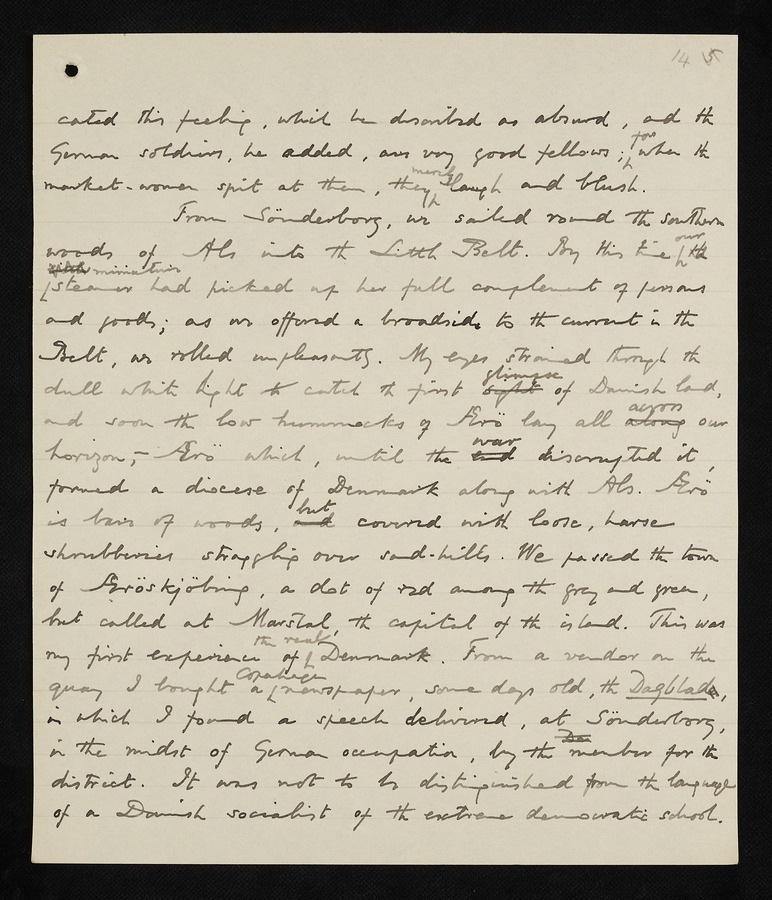 14 5
cated this feeling, which he described as absurd, and the
German soldiers, he added, are very good fellows; for when the
market-women spit at them, they merely laugh and blush.
From Sönderborg, we sailed round the southern
woods of Als into the Little Belt. By this time our the
miniature steamer had picked up her full complement of persons
and goods; as we offered a broadside to the current in the
Belt, we rolled unpleasantly. My eyes strained through the
dull white light to catch the first sight glimpse of Danish land,
and soon the low hummocks of Ærö lay all along across our
horizon, – Ærö which, until the end war disrupted it,
formed a diocese of Denmark along with Als. Ærö
is bare of woods, and but covered with loose, harse
shrubberies straggling over sand-hills. We passed the town
of Æröskjöbing, a dot of red among the grey and green,
but called at Marstal, the capital of the island. This was
my first experience of the real Denmark. From a vendor on the
quay I bought a Copenhagen newspaper, some days old, the Dagblade,
in which I found a speech delivered, at Sönderborg,
in the midst of German occupation, by the member for the
district. It was not to be distinguished from the language
of a Danish socialist of the extreme democratic school.